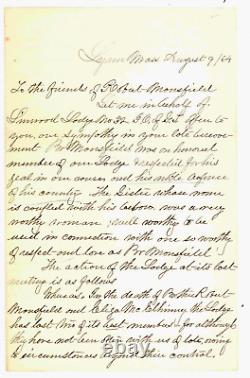 Lynn Mass August 9/64
To the friends of Robert Mansfield
Let me in behalf of
Linwood Lodge No 32 I.O. of G.T. offer to
you, our sympathy in your late bereave-
ment Br Mansfield was an honored
member of our Lodge respected for his
zeal in our cause and his noble defence
of his country. The Sister whose name
is coupled with his below, was a very
worthy woman, well worthy to be
used in connection with one so worthy
of respect and love as Br Mansfield
The action of the Lodge at its last
meeting is as follows
Whereas In the death of Brother Robert
Mansfield and Eliza McElhinney the Lodge
has lost two of its best members for although
they have not been often with us of late, owing
to circumstances against their control,